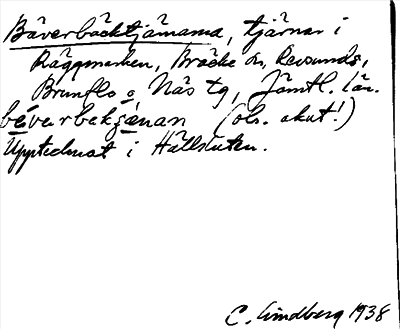 Bäverbäcktjärnarna, tjärnar i
Räggmarken, Bräcke sn, Revsunds,
Brunflo o Näs tg, Jämtl. län.
béverbekʒǽnan (obs. akut!)
Upptecknat i Hällsåten.
C. Lindberg 1938